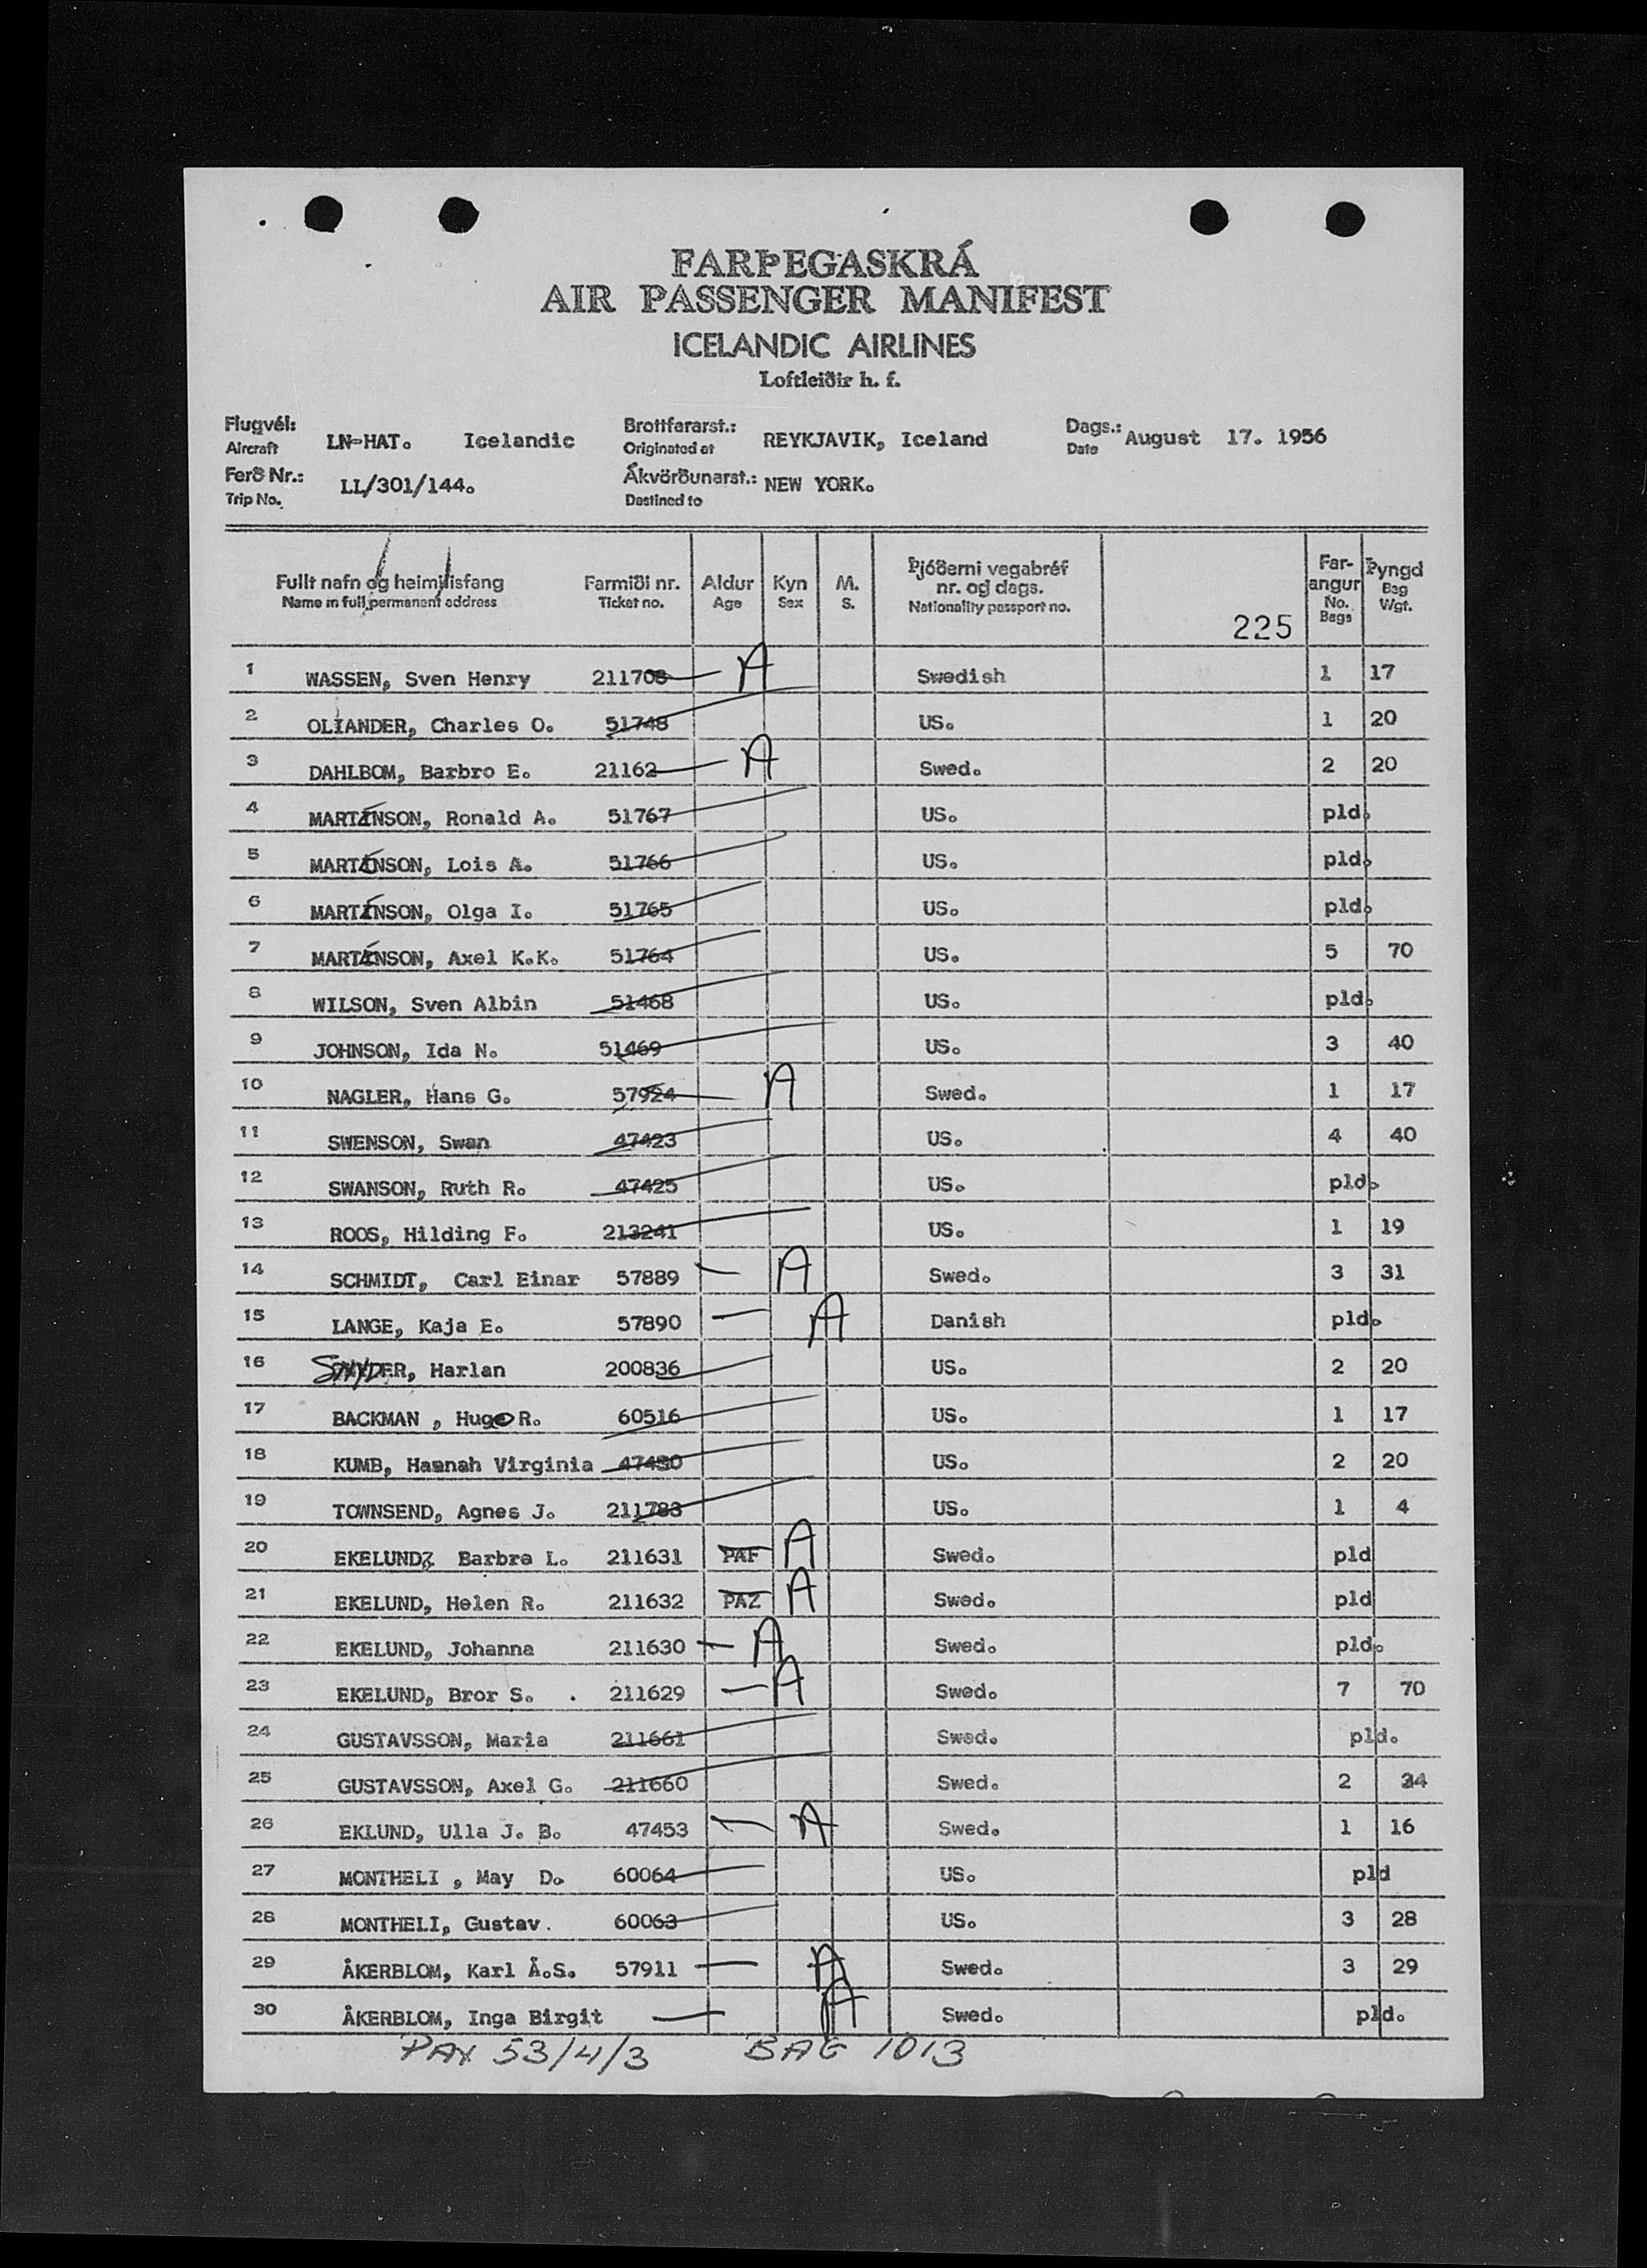 FARÞEGASKRÁ
AIR PASSENGER MANIFEST
ICELANDIC AIRLINES
Loftleiðir h. f.
Flugvél: LN-HAT. Icelandic Brottfararst.: REYKJAVIK, Iceland Dags.: August 17. 1956
Aircraft Originated at Date
Ferð Nr.: LL/301/144. Ákvörðunarst.: NEW YORK.
Trip No. Destined to
Fullt nafn og heimilisfang Farmiði nr. Aldur Kyn M. Þjóðerni vegabréf nr. og dags. Farangur Þyngd
Name in full permanent address Ticket no. Age Sex S. Nationality passport no. 225 No. Bags Bag Wgt.
1 WASSEN, Sven Henry 211708 A Swedish 1 17
2 OLIANDER, Charles O. 51748 US. 1 20
3 DAHLBOM, Barbro E. 21162 A Swed. 2 20
4 MARTINSON, Ronald A. 51767 US. pld.
5 MARTINSON, Lois A. 51766 US. pld.
6 MARTINSON, Olga I. 51765 US. pld.
7 MARTINSON, Axel K.K. 51764 US. 5 70
8 WILSON, Sven Albin 51468 US. pld.
9 JOHNSON, Ida N. 51469 US. 3 40
10 NAGLER, Hans G. 57924 A Swed. 1 17
11 SWENSON, Swan 47423 US. 4 40
12 SWANSON, Ruth R. 47425 US. pld.
13 ROOS, Hilding F. 213241 US. 1 19
14 SCHMIDT, Carl Einar 57889 A Swed. 3 31
15 LANGE, Kaja E. 57890 A Danish pld.
16 SNYDER, Harlan 200836 US. 2 20
17 BACKMAN , Hugo R. 60516 US. 1 17
18 KUMB, Hannah Virginia 47430 US. 2 20
19 TOWNSEND, Agnes J. 211783 US. 1 4
20 EKELUND, Barbra L. 211631 PAF A Swed. pld
21 EKELUND, Helen R. 211632 PAZ A Swed. pld
22 EKELUND, Johanna 211630 A Swed. pld.
23 EKELUND, Bror S. 211629 A Swed. 7 70
24 GUSTAVSSON, Maria 211661 Swed. pld.
25 GUSTAVSSON, Axel G. 211660 Swed. 2 34
26 EKLUND, Ulla J. B. 47453 A Swed. 1 16
27 MONTHELI , May D. 60064 US. pld
28 MONTHELI, Gustav. 60063 US. 3 28
29 ÅKERBLOM, Karl Å.S. 57911 A Swed. 3 29
30 ÅKERBLOM, Inga Birgit A Swed. pld.
PAX 53/4/3 BAG 1013